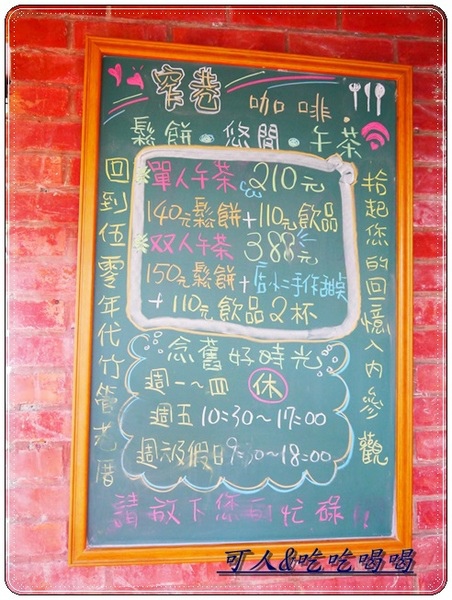 窄巷 咖啡
鬆餅·悠閒·午茶
單人午茶 210元
140元鬆餅+110元飲品
双人午茶 388元
150元鬆餅+店仁手作甜点
+110元飲品2杯
回到伍零年代竹管老厝
拾起您的回憶入內參觀
念舊好時光
週一~四 休
週五 10:30~17:00
週六及假日9:30~18:00
請放下您的忙碌!!
可人&吃吃喝喝